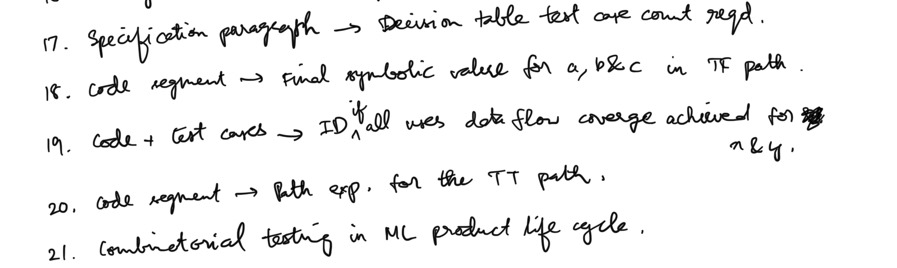 17. Specification paragraph → Decision table test case count reqd.
18. Code segment → Final symbolic value for a, b & c in TF path.
19. Code + test cases → ID if all uses data flow coverage achieved for
x & y.
20. Code segment → Path exp. for the TT path.
21. Combinatorial testing in ML product life cycle.